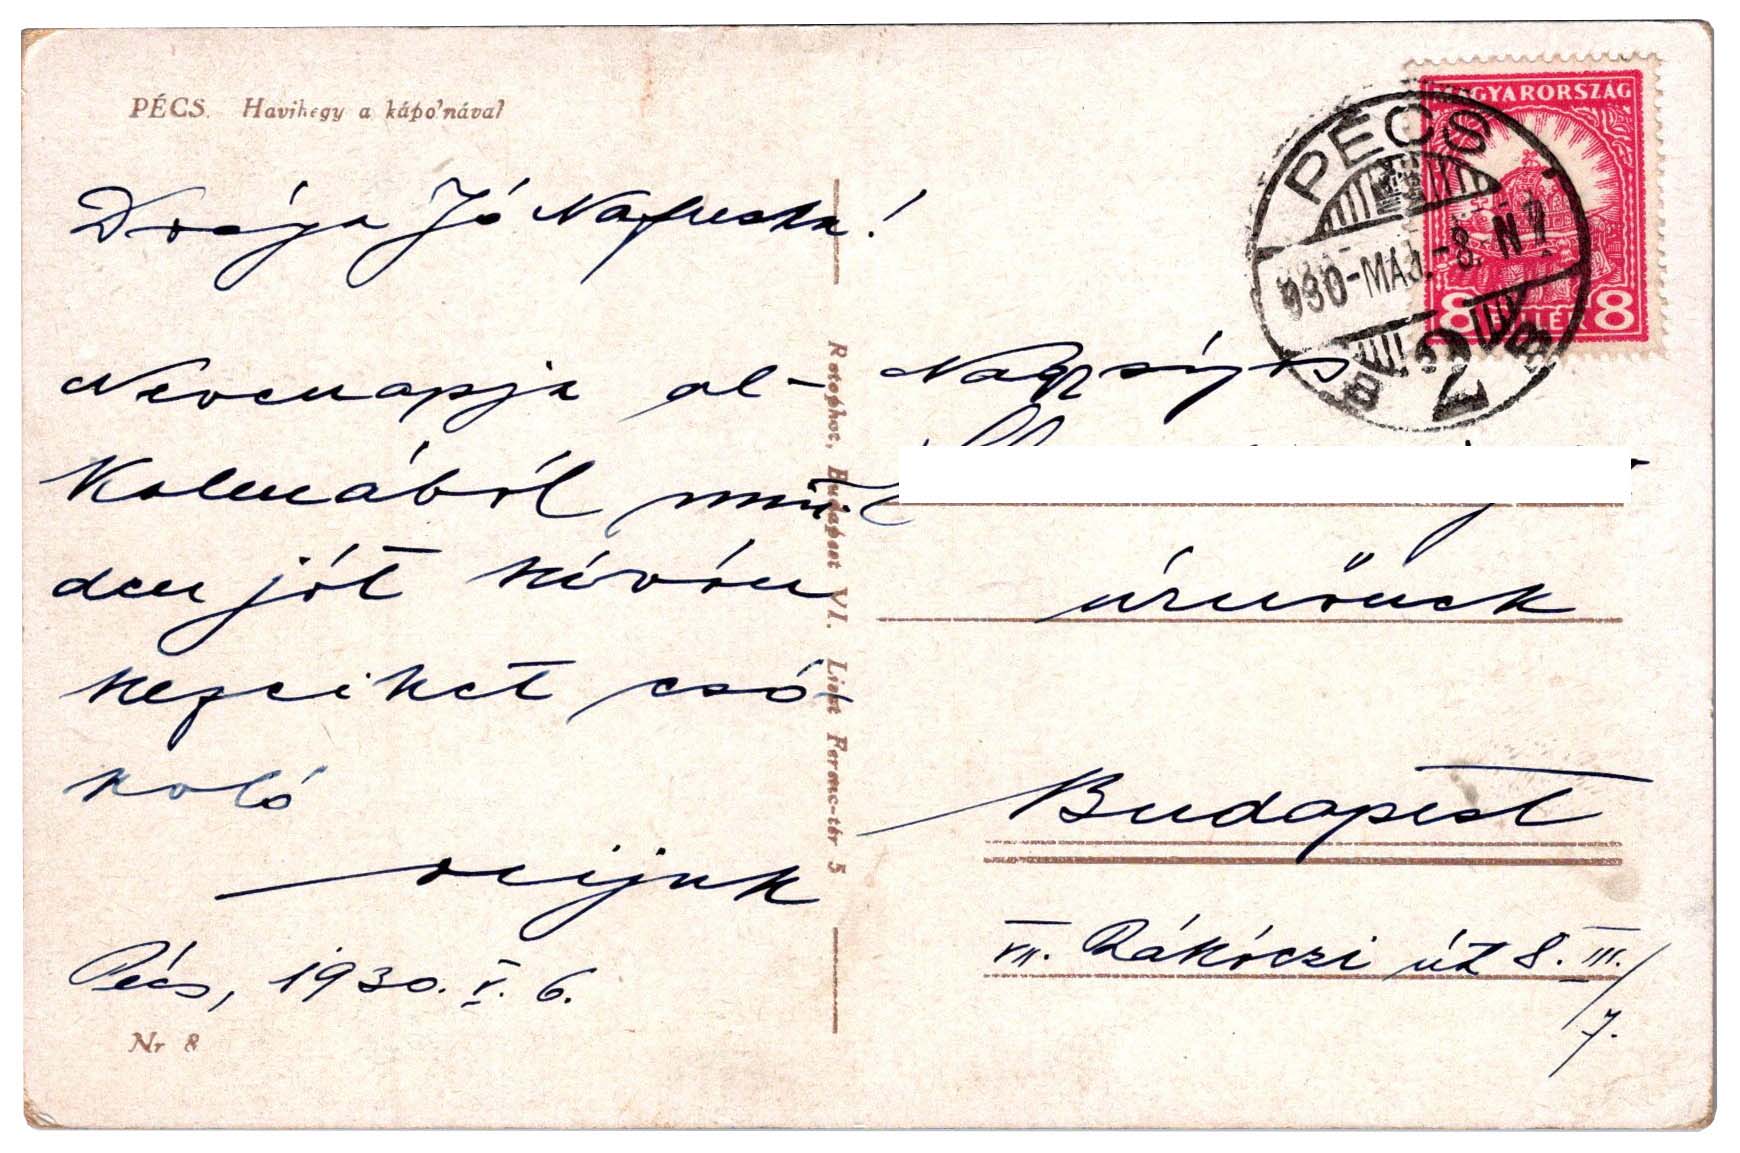 PÉCS. Havihegy a kápolnával
Drága Jó
Nevenapja al-
kalmából min-
den jót kíván
kezeiket csó-
koló
Pécs, 1930. V. 6.
Nr 8
Rotophot, Budapest VI. Liszt Ferenc-tér 5
MAGYARORSZÁG
8 FILLÉR 8
PÉCS
930-MÁJ.-8. N
2
Nagyságos
úrnőnek
Budapest
VII. Rákóczi út 8. III./
7.